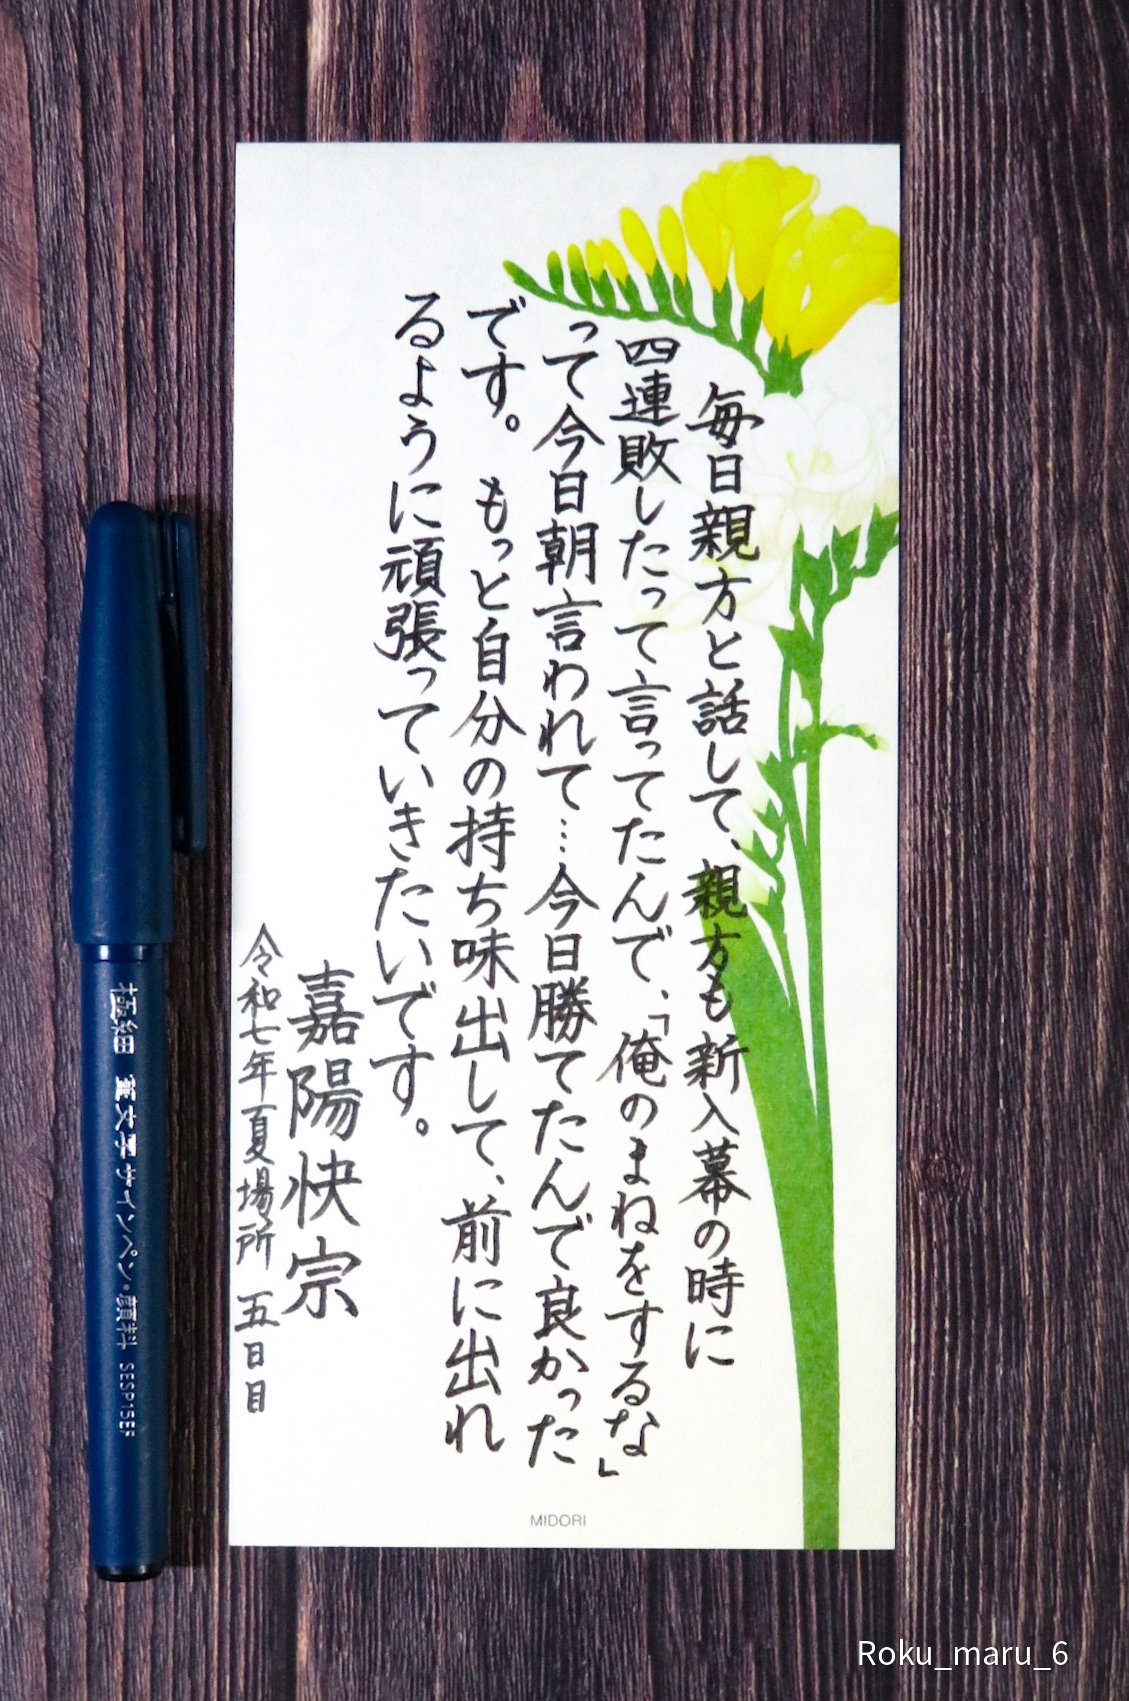 毎日親方と話して、親方も新入幕の時に
四連敗したって言ってたんで、「俺のまねをするな」
って今日朝言われて…今日勝てたんで良かった
です。もっと自分の持ち味出して、前に出れ
るように頑張っていきたいです。
嘉陽快宗
令和七年夏場所 五日目
極細 筆文字サインペン・顔料 SESP15EF
MIDORI
Roku_maru_6